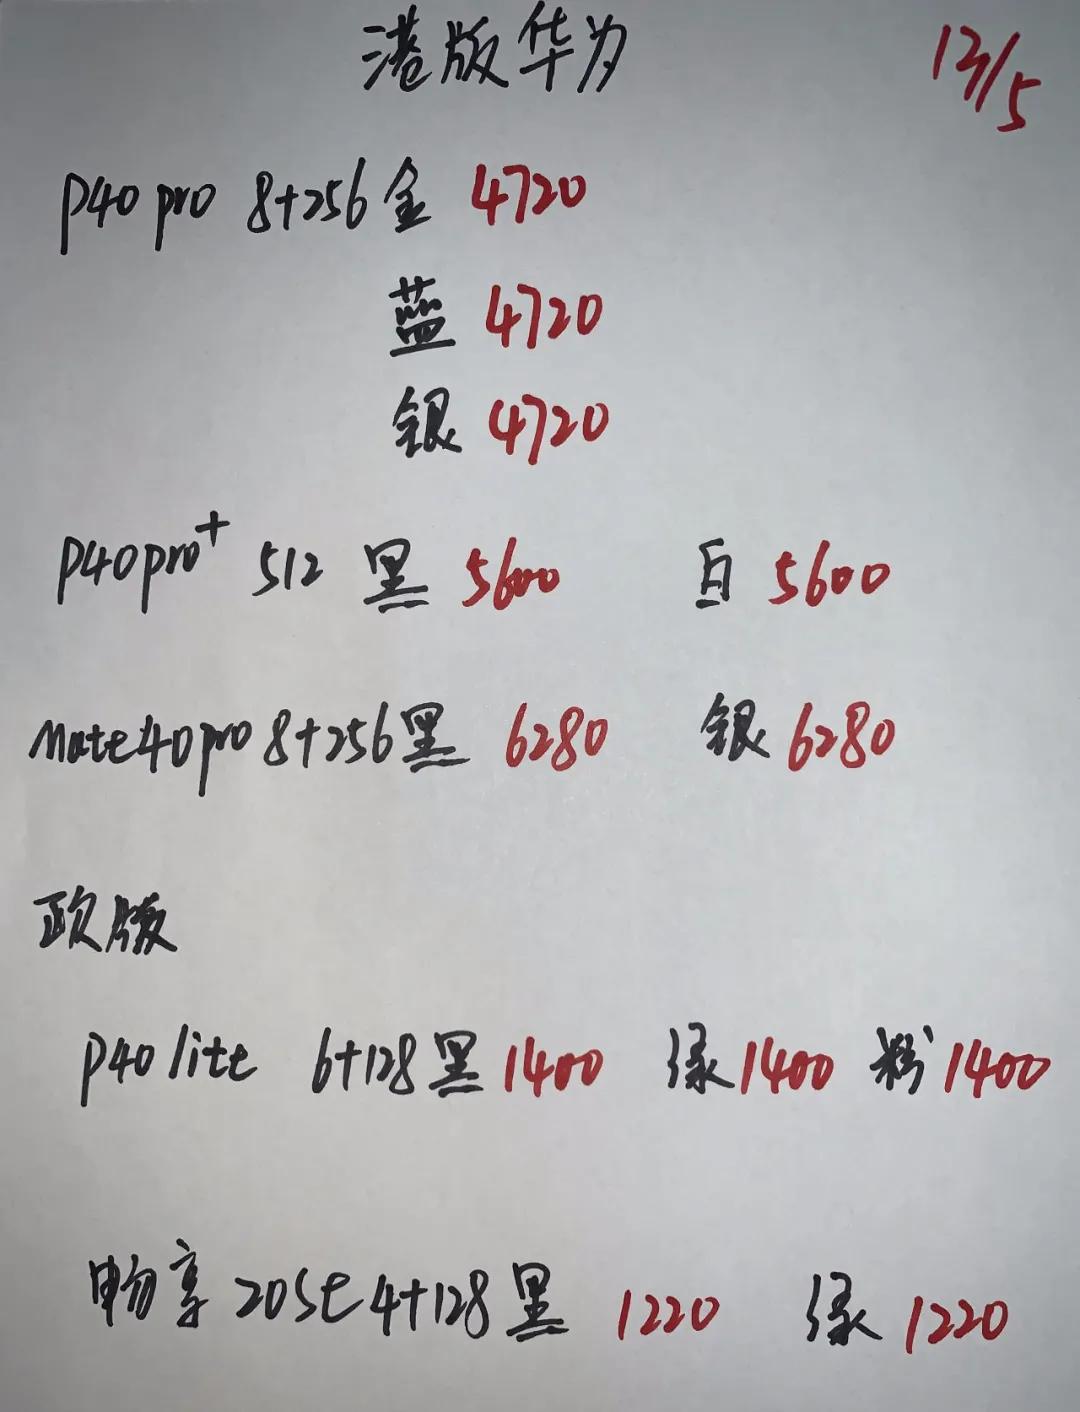 港版华为 13/5
P40 pro 8+256 金 4720
蓝 4720
银 4720
P40pro+ 512 黑 5600 白 5600
Mate40pro 8+256 黑 6280 银 6280
欧版
P40 lite 6+128 黑 1400 绿 1400 粉 1400
畅享 20SE 4+128 黑 1220 绿 1220